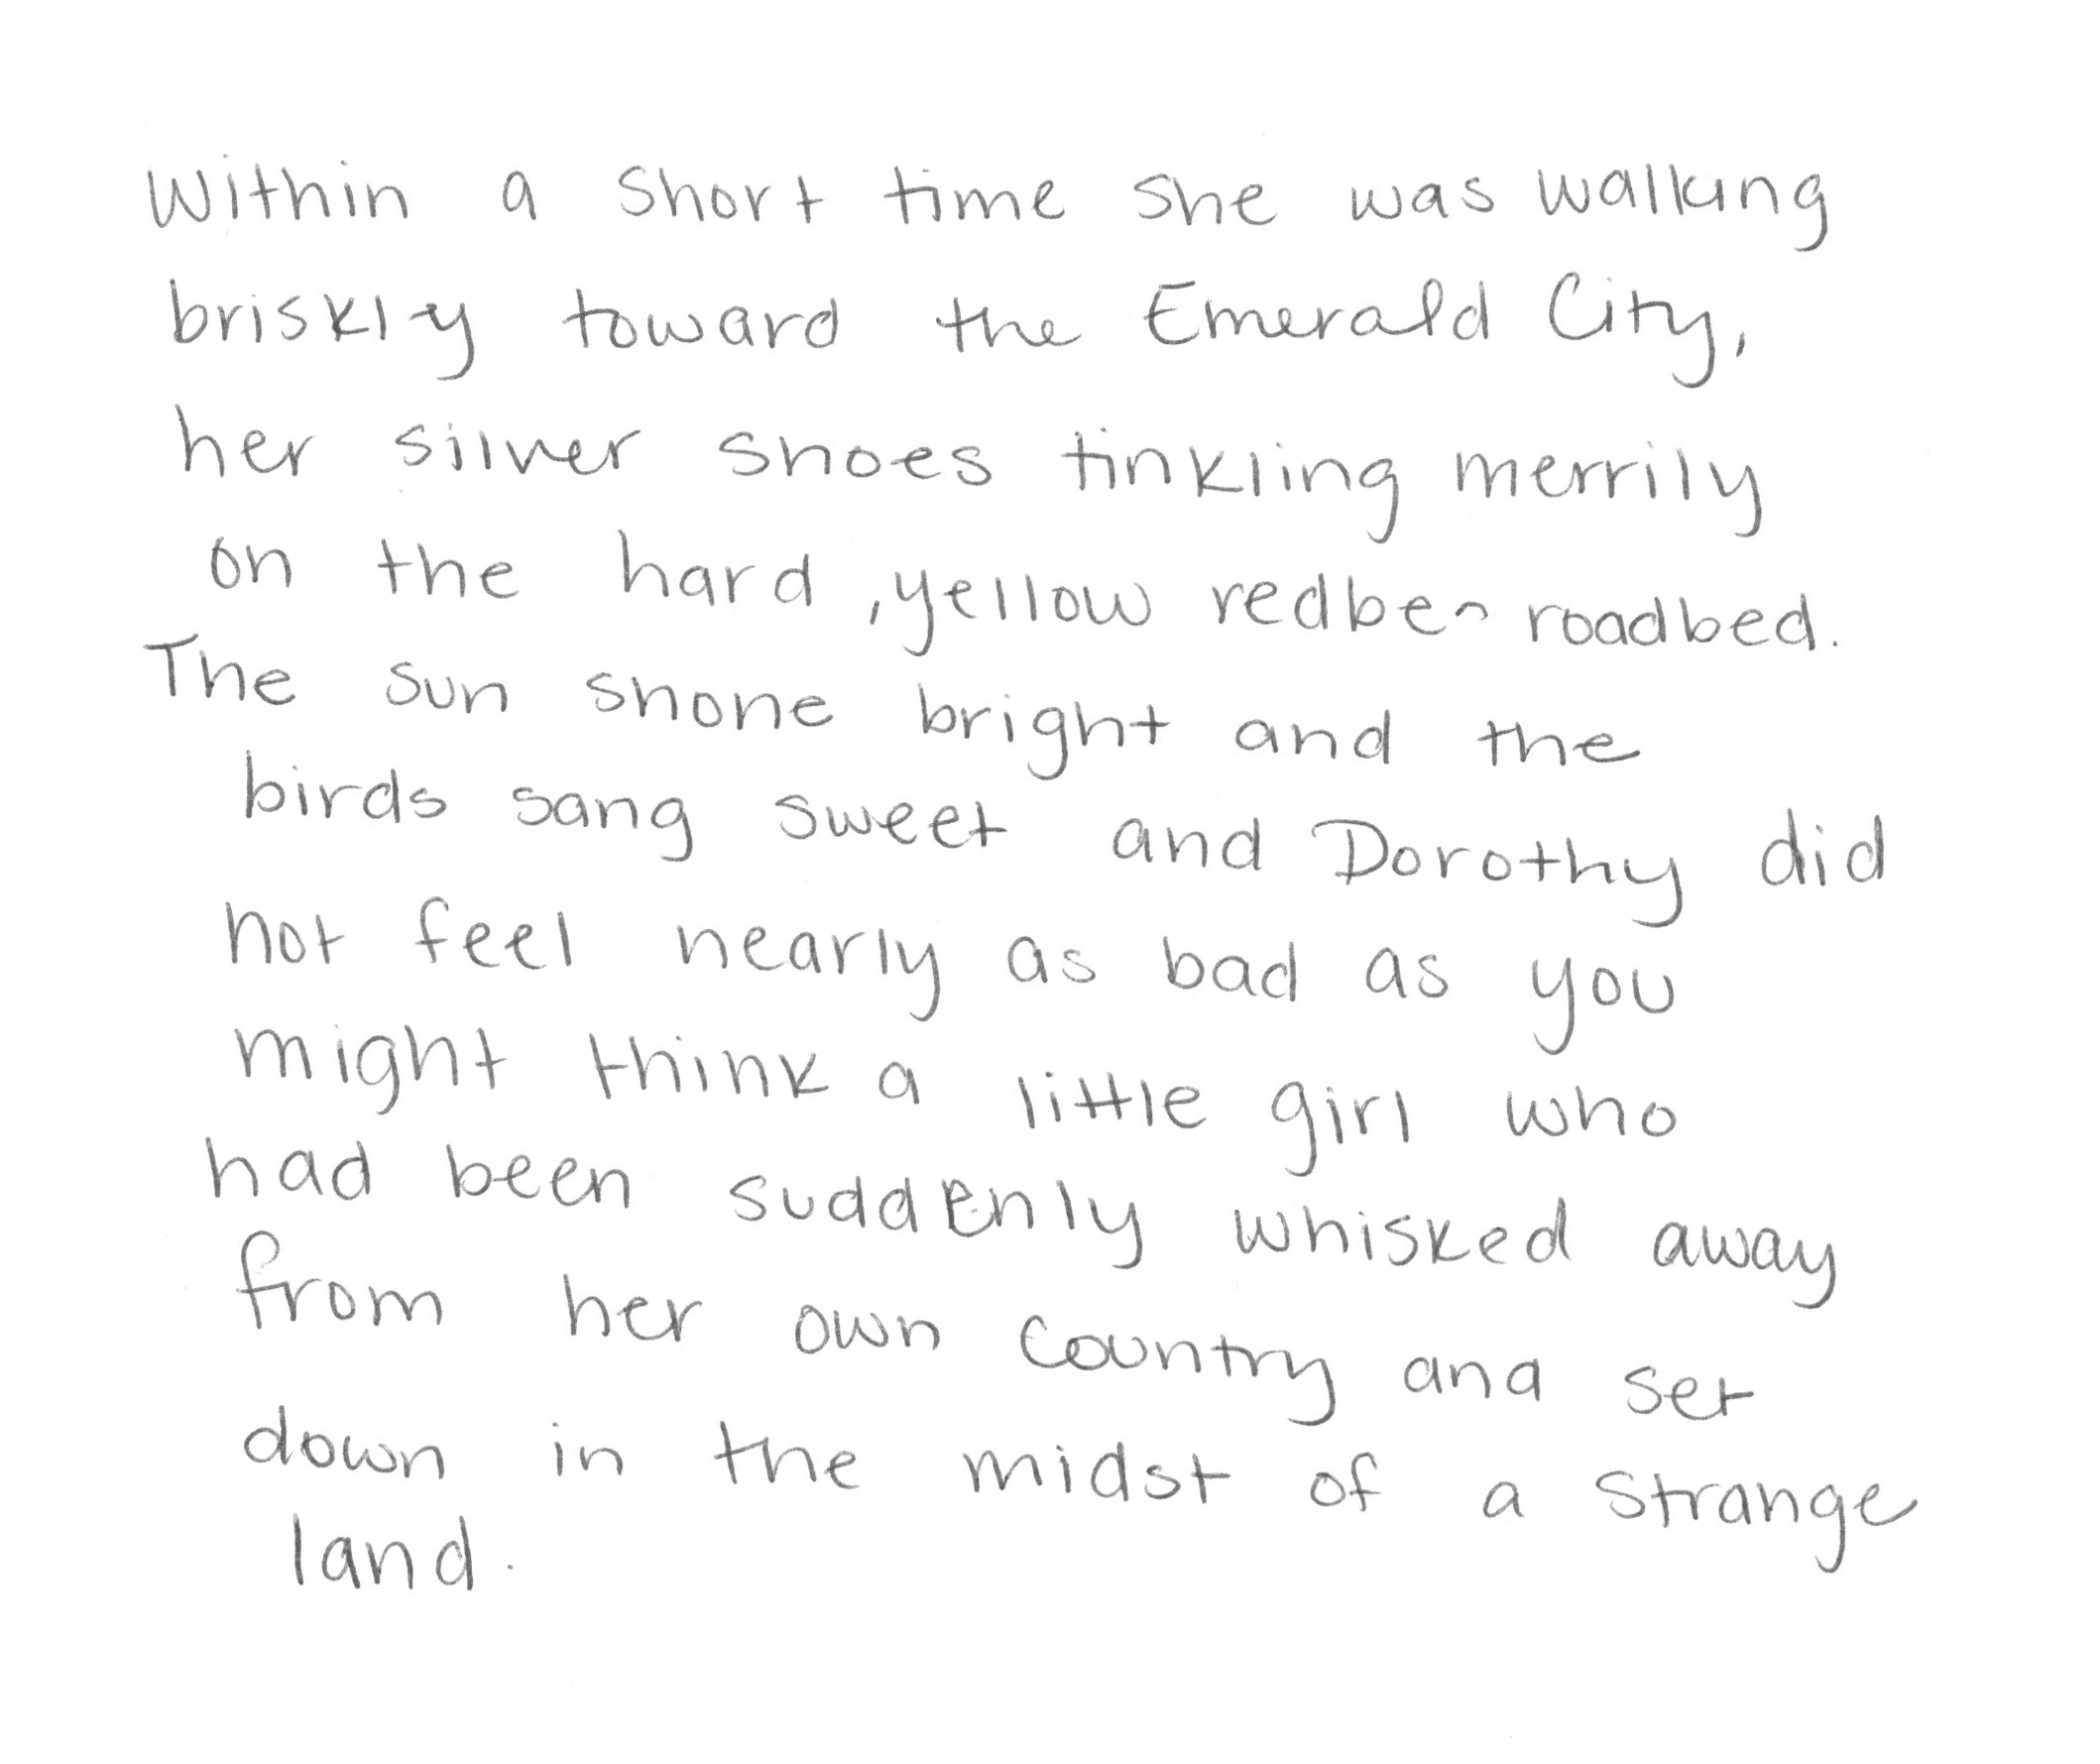 Within a short time she was walking
briskly toward the Emerald City,
her silver shoes tinkling merrily
on the hard, yellow redben roadbed.
The sun shone bright and the
birds sang sweet and Dorothy did
not feel nearly as bad as you
might think a little girl who
had been suddenly whisked away
from her own country and set
down in the midst of a strange
land.